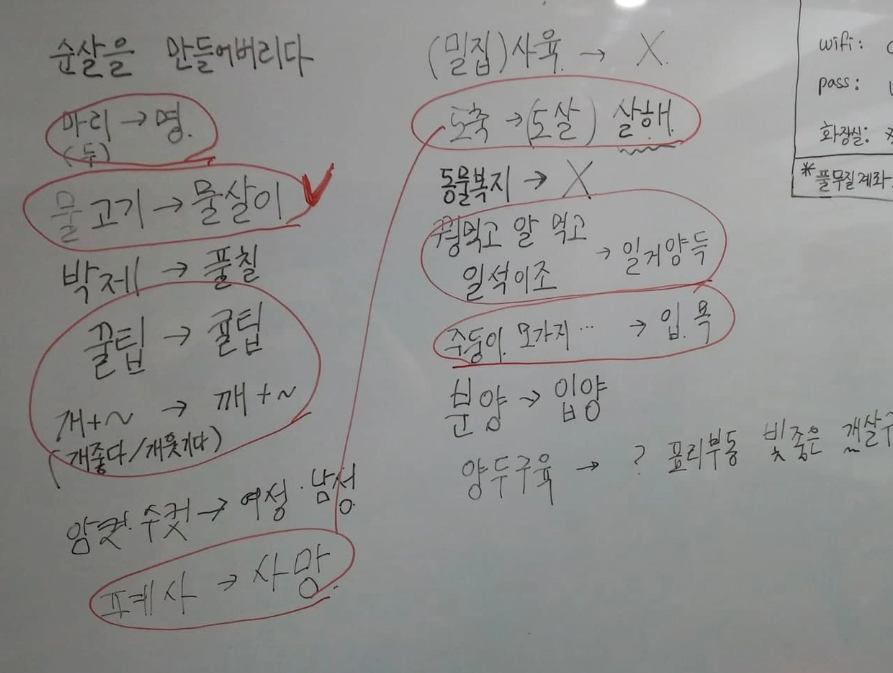 순살을 만들어버리다
마리 → 명.
(두)
물고기 → 물살이
박제 → 풀칠
꿀팁 → 귤팁
개+~ → 깨+~
(개좋다/개웃기다)
암컷·수컷 → 여성·남성
폐사 → 사망
(밀집)사육 → X
도축 → (도살) 살해
동물복지 → X
꿩먹고 알 먹고
일석이조 → 일거양득
주둥이, 모가지… → 입. 목
분양 → 입양
양두구육 → ? 표리부동 빛좋은 개살구
wifi:
pass:
화장실:
*풀무질계좌